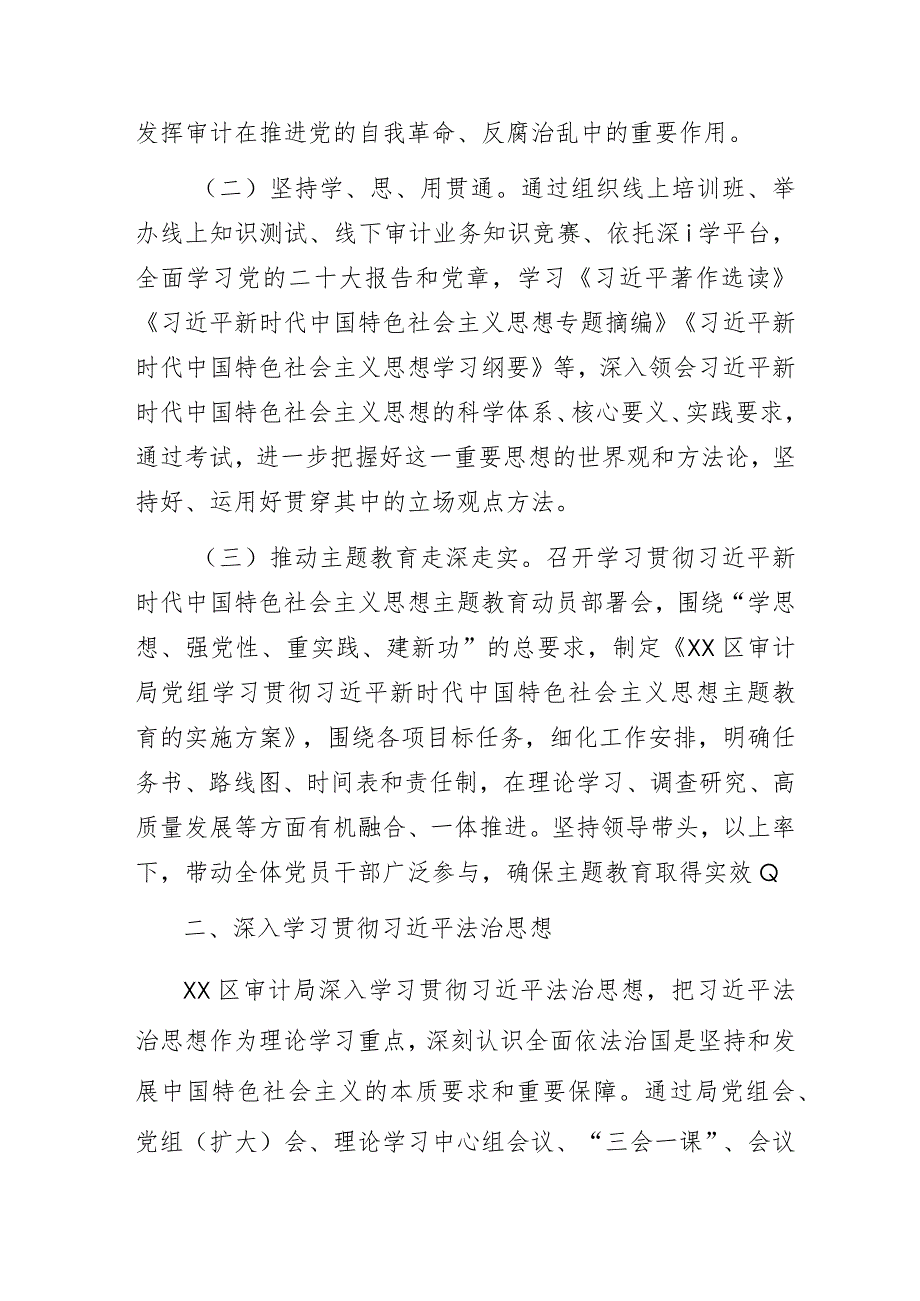 发挥审计在推进党的自我革命、反腐治乱中的重要作用。
（二）坚持学、思、用贯通。通过组织线上培训班、举
办线上知识测试、线下审计业务知识竞赛、依托深i学平台，
全面学习党的二十大报告和党章，学习《习近平著作选读》
《习近平新时代中国特色社会主义思想专题摘编》《习近平新
时代中国特色社会主义思想学习纲要》等，深入领会习近平新
时代中国特色社会主义思想的科学体系、核心要义、实践要求，
通过考试，进一步把握好这一重要思想的世界观和方法论，坚
持好、运用好贯穿其中的立场观点方法。
（三）推动主题教育走深走实。召开学习贯彻习近平新
时代中国特色社会主义思想主题教育动员部署会，围绕“学思
想、强党性、重实践、建新功”的总要求，制定《XX区审计
局党组学习贯彻习近平新时代中国特色社会主义思想主题教
育的实施方案》，围绕各项目标任务，细化工作安排，明确任
务书、路线图、时间表和责任制，在理论学习、调查研究、高
质量发展等方面有机融合、一体推进。坚持领导带头，以上率
下，带动全体党员干部广泛参与，确保主题教育取得实效Q
二、深入学习贯彻习近平法治思想
XX区审计局深入学习贯彻习近平法治思想，把习近平法
治思想作为理论学习重点，深刻认识全面依法治国是坚持和发
展中国特色社会主义的本质要求和重要保障。通过局党组会、
党组（扩大）会、理论学习中心组会议、“三会一课”、会议